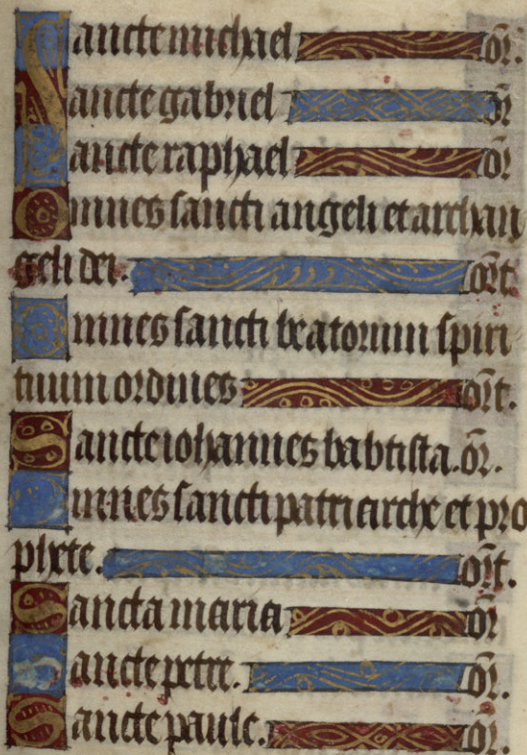 Sancte michael or.
Sancte gabriel or
Sancte raphael or
Omnes sancti angeli et archan
geli dei. ort.
Omnes sancti beatorum spiri
tuum ordines ort.
Sancte iohannes babtista. or.
Omnes sancti patriarche et pro
phete. ort.
Sancta maria or
Sancte petre. or.
Sancte paule. or.